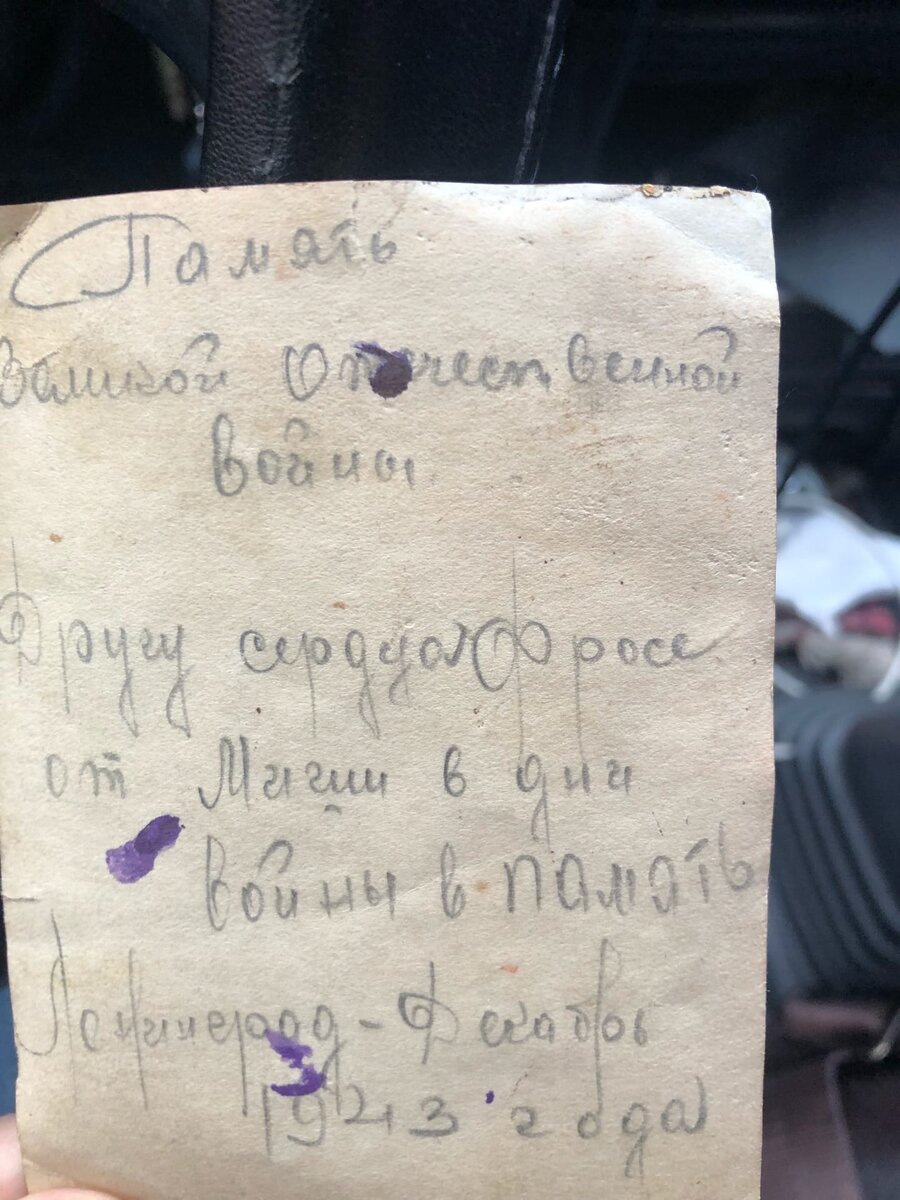 Память
Великой Отечественной
Войны.
Другу сердца Фросе
от Миши в дни
войны в память
Ленинград - Декабрь
1943 года